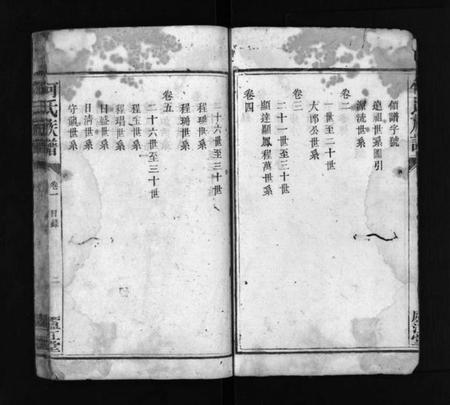 領譜字號
遠祖世系圖引
源流世系
卷二
一世至二十世
大郎公世系
卷三
二十一世至三十世
顯達顯鳳程萬世系
卷四
二十六世至三十世
程瑞世系
程珊世系
卷五
二十六世至三十世
程玉世系
程琩世系
日盛世系
日清世系
守觀世系
何氏族譜
卷一 目錄
二
廬江堂